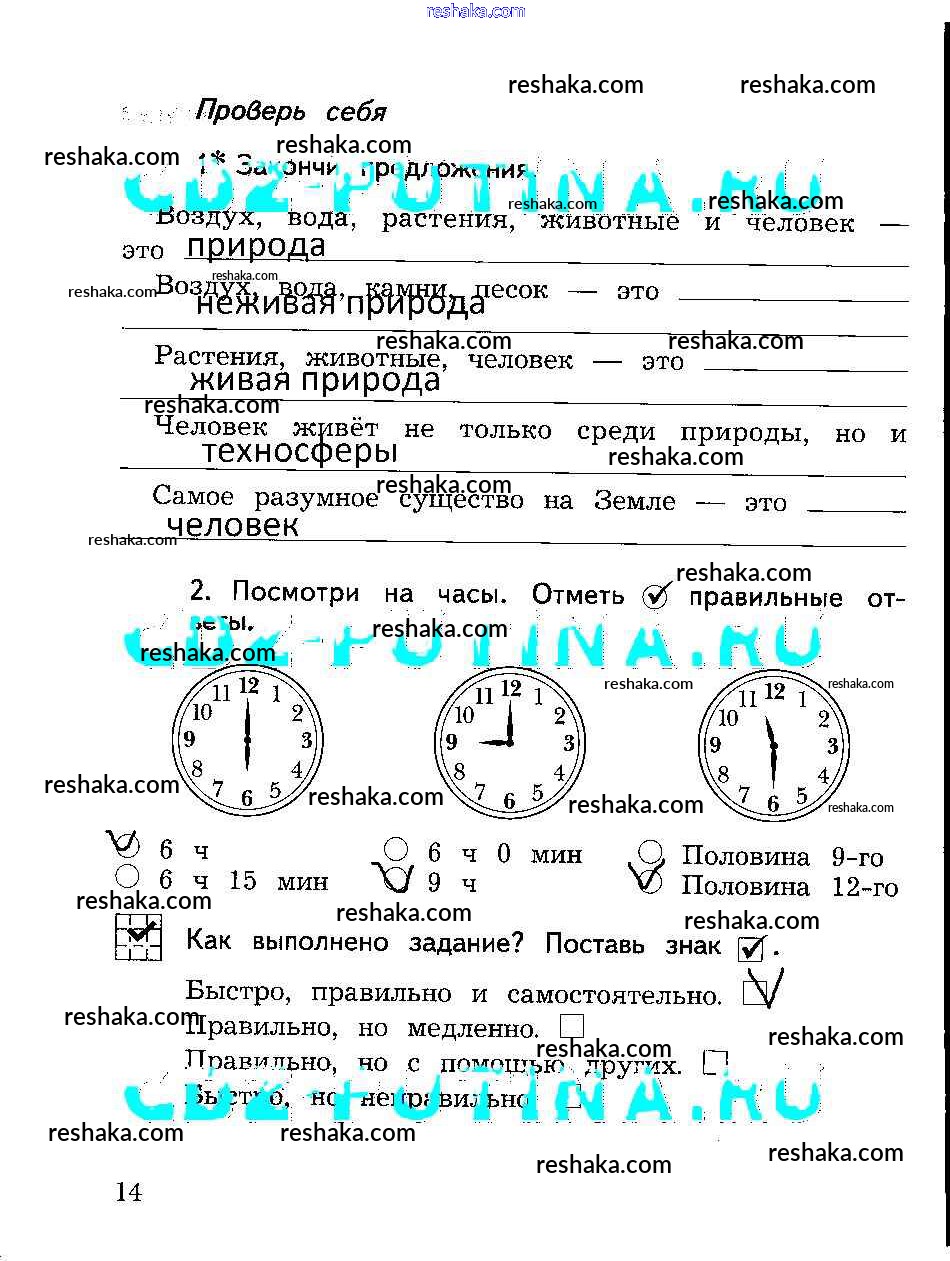 reshaka.com
reshaka.com reshaka.com
Проверь себя
reshaka.com reshaka.com
1* Закончи предложения.
CDZ-PUTINA.RU
reshaka.com reshaka.com
Воздух, вода, растения, животные и человек —
это природа
reshaka.com
reshaka.com Воздух, вода, камни, песок — это
неживая природа
reshaka.com reshaka.com
Растения, животные, человек — это
живая природа
reshaka.com
Человек живёт не только среди природы, но и
техносферы
reshaka.com
reshaka.com
Самое разумное существо на Земле — это
человек
reshaka.com
reshaka.com
2. Посмотри на часы. Отметь правильные от-
веты.
reshaka.com
CDZ-PUTINA.RU
reshaka.com
reshaka.com reshaka.com
12 1 2 3 4 5 6 7 8 9 10 11
12 1 2 3 4 5 6 7 8 9 10 11
12 1 2 3 4 5 6 7 8 9 10 11
reshaka.com reshaka.com reshaka.com reshaka.com
6 ч 6 ч 0 мин Половина 9-го
6 ч 15 мин 9 ч Половина 12-го
reshaka.com reshaka.com reshaka.com
Как выполнено задание? Поставь знак .
Быстро, правильно и самостоятельно.
reshaka.com
Правильно, но медленно.
reshaka.com reshaka.com
Правильно, но с помощью других.
Быстро, но неправильно
CDZ-PUTINA.RU
reshaka.com reshaka.com
reshaka.com reshaka.com
14